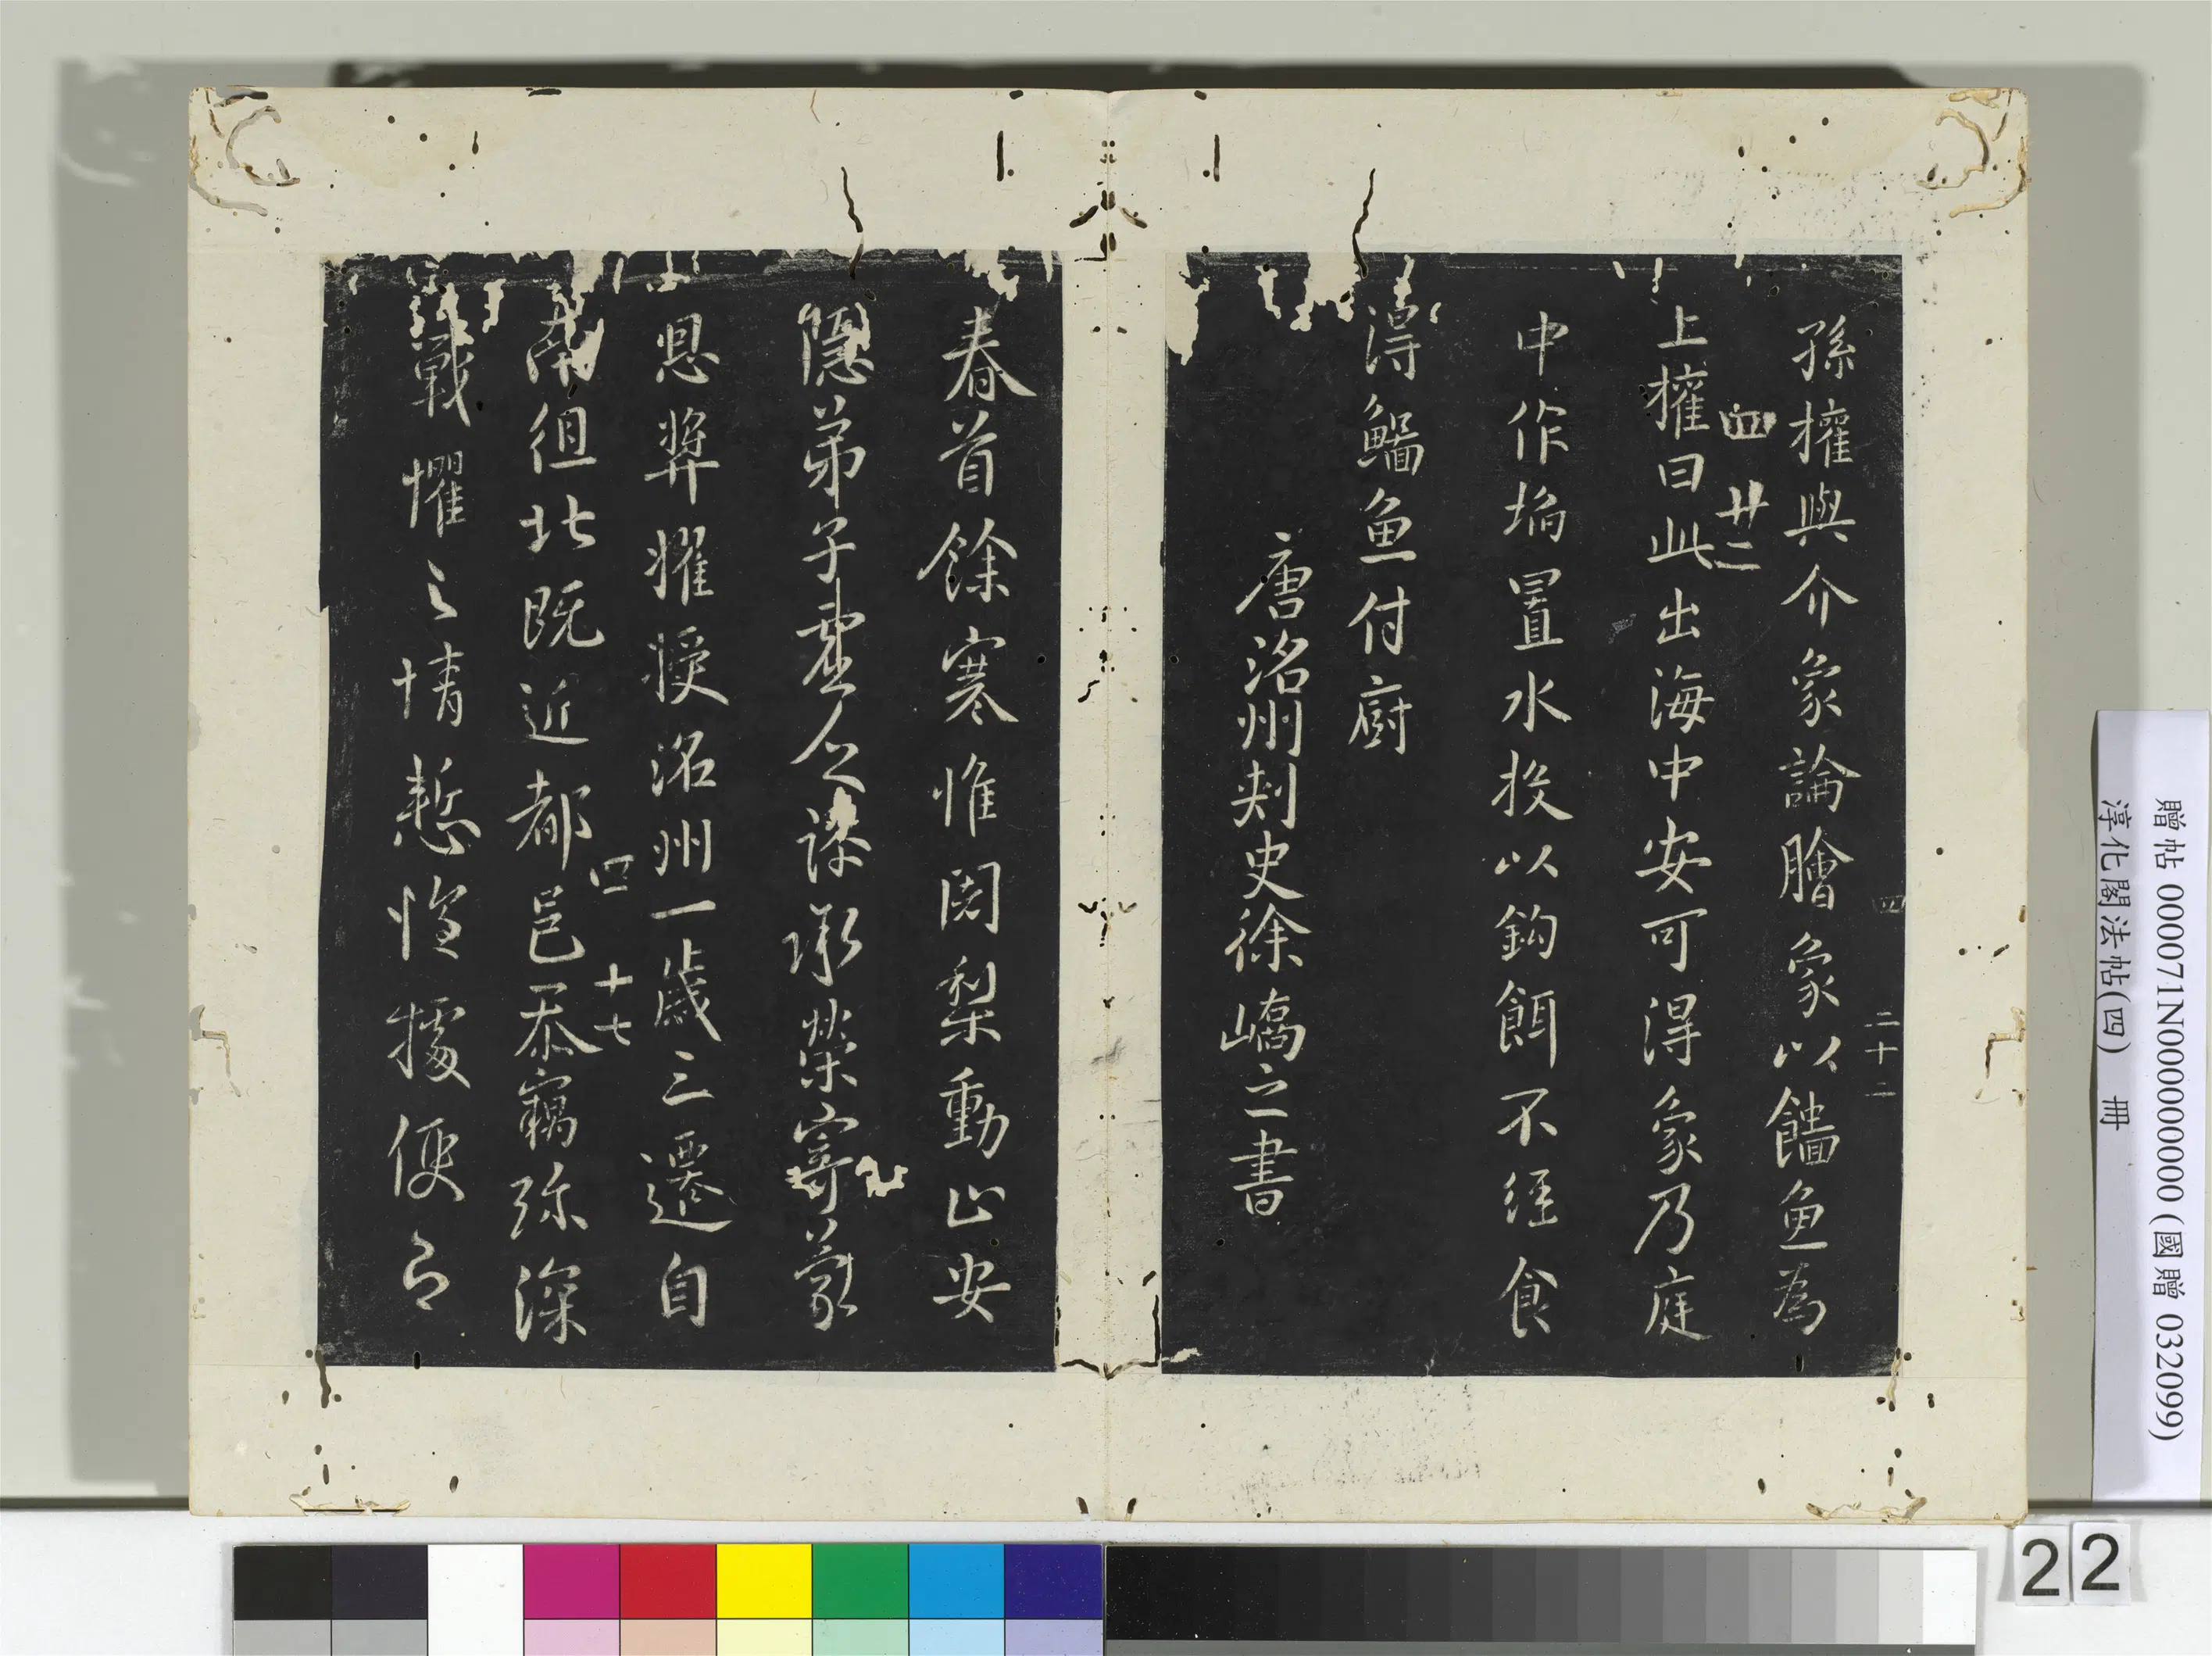 孫權與介象論膾象以鯔魚為
上權曰此出海中安可得象乃庭
中作埳置水投以鈎餌不經食
得鯔魚付廚
唐洺州刾史徐嶠之書
四 廿二
四 二十二
春首餘寒惟闍梨動止安
隱弟子虛乏謬承榮寄蒙
恩奨擢授洺州一歲三遷自
南徂北既近都邑忝竊弥深
戰懼之情慙惶據便即
四 十七
贈帖 000071N000000000 (國贈 032099)
淳化閣法帖(四) 冊
22